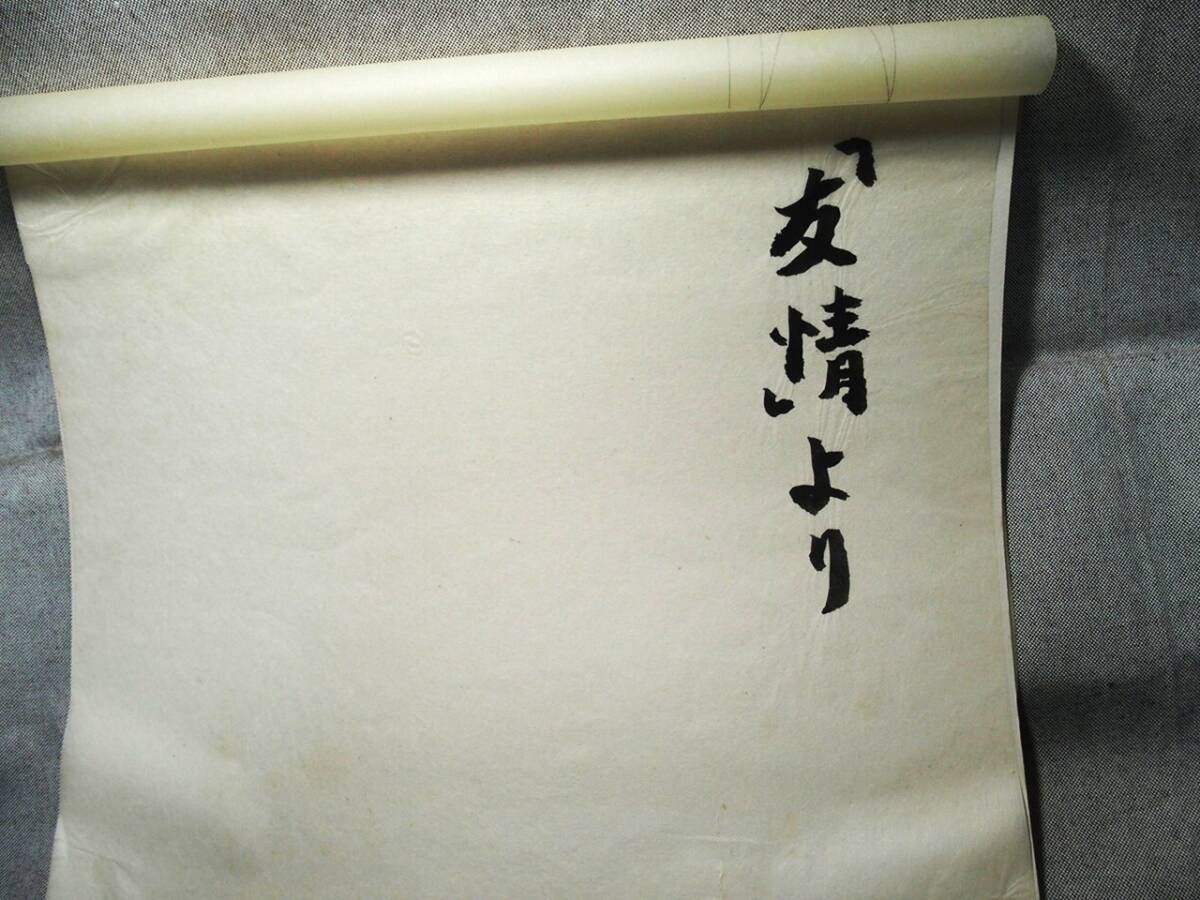 「友情」より